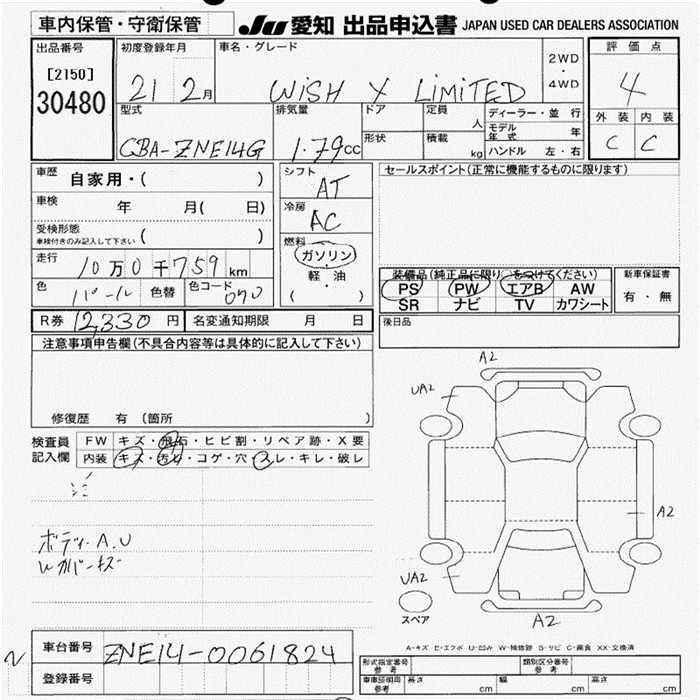 車内保管・守衛保管 JU 愛知 出品申込書 JAPAN USED CAR DEALERS ASSOCIATION
出品番号 初度登録年月 車名・グレード 2WD・4WD 評価点
[2150] 30480 21 2月 WiSH X LiMiTED 4
型式 排気量 ドア 定員 人 ディーラー・並行 外装 内装
CBA-ZNE14G 1.79cc 形状 積載 kg モデル年式 年 C C
ハンドル 左・右
車歴 自家用・( ) シフト AT セールスポイント(正常に機能するものに限ります)
車検 年 月( 日) 冷房 AC
受検形態 車検付きのみ記入して下さい ( )
燃料 ガソリン 軽・油 ( )
走行 10万0千759km
装備品(純正品に限り○をつけてください) 新車保証書
色 パール 色替 色コード 070
PS PW エアB AW 有・無
SR ナビ TV カワシート
R券 12,330円 名変通知期限 月 日 後日品
注意事項申告欄(不具合内容等は具体的に記入して下さい)
修復歴 有 (箇所 )
検査員記入欄 FW キズ・飛石・ヒビ割・リペア跡・X要
内装 キズ・汚れ・コゲ・穴・スレ・キレ・破レ
ボディ・A.U
A2
UA2
A2
UA2
A2
スペア
A-キズ E-エクボ U-凹み W-補修跡 S-サビ C-腐食 XX-交換済
車台番号 ZNE14-0061824
登録番号
形式指定番号 参考 類別区分番号 参考
車庫証明用 参考 長さ cm 幅 cm 高さ cm